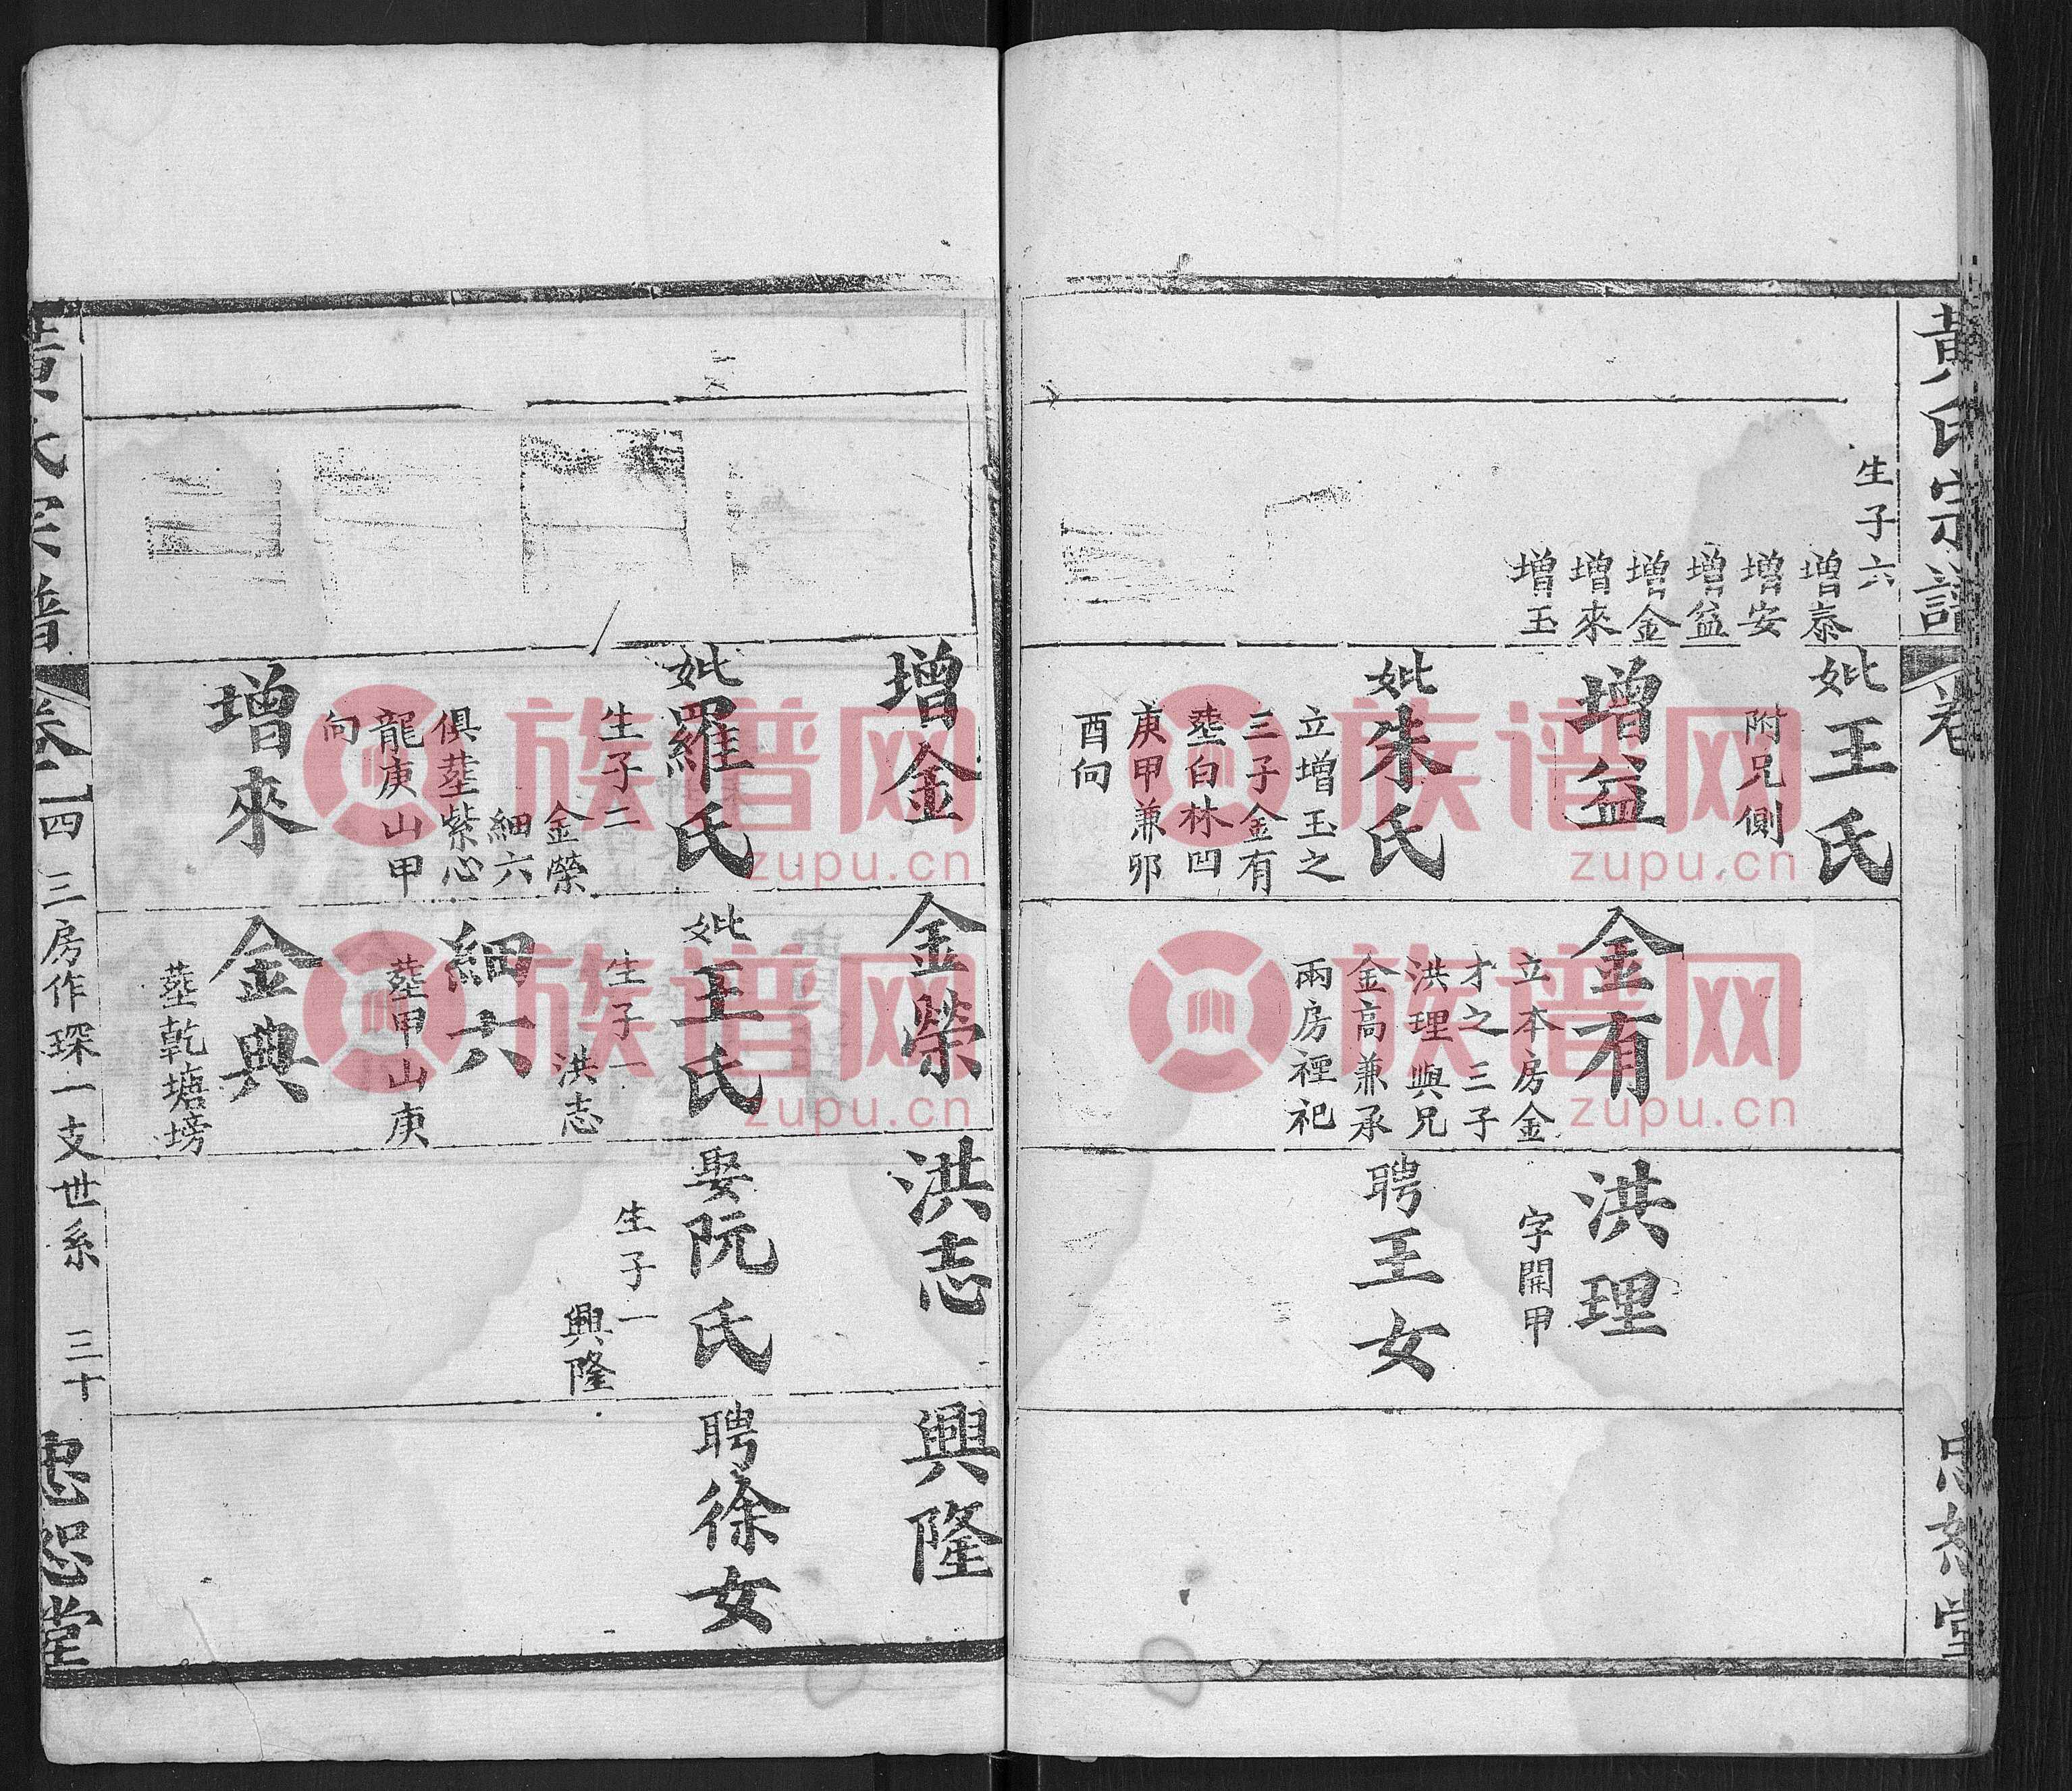 黃氏宗譜
卷
生子六
增泰
增安
增益
增金
增來
增玉
妣王氏
附兄側
增益
妣朱氏
立增玉之
三子金有
塟白林凹
庚甲兼卯
酉向
金有
立本房金
才之三子
洪理與兄
金高兼承
兩房禋祀
洪理
字開甲
聘王女
增金
妣羅氏
生子二
金榮
細六
俱塟紫心
龍庚山甲
向
增來
金榮
妣王氏
生子一
洪志
細六
塟甲山庚
金典
塟乾塘塝
洪志
娶阮氏
生子一
興隆
興隆
聘徐女
黃氏宗譜
卷四
三房作琛一支世系
三十
忠恕堂
族谱网
zupu.cn
族谱网
zupu.cn
族谱网
zupu.cn
族谱网
zupu.cn